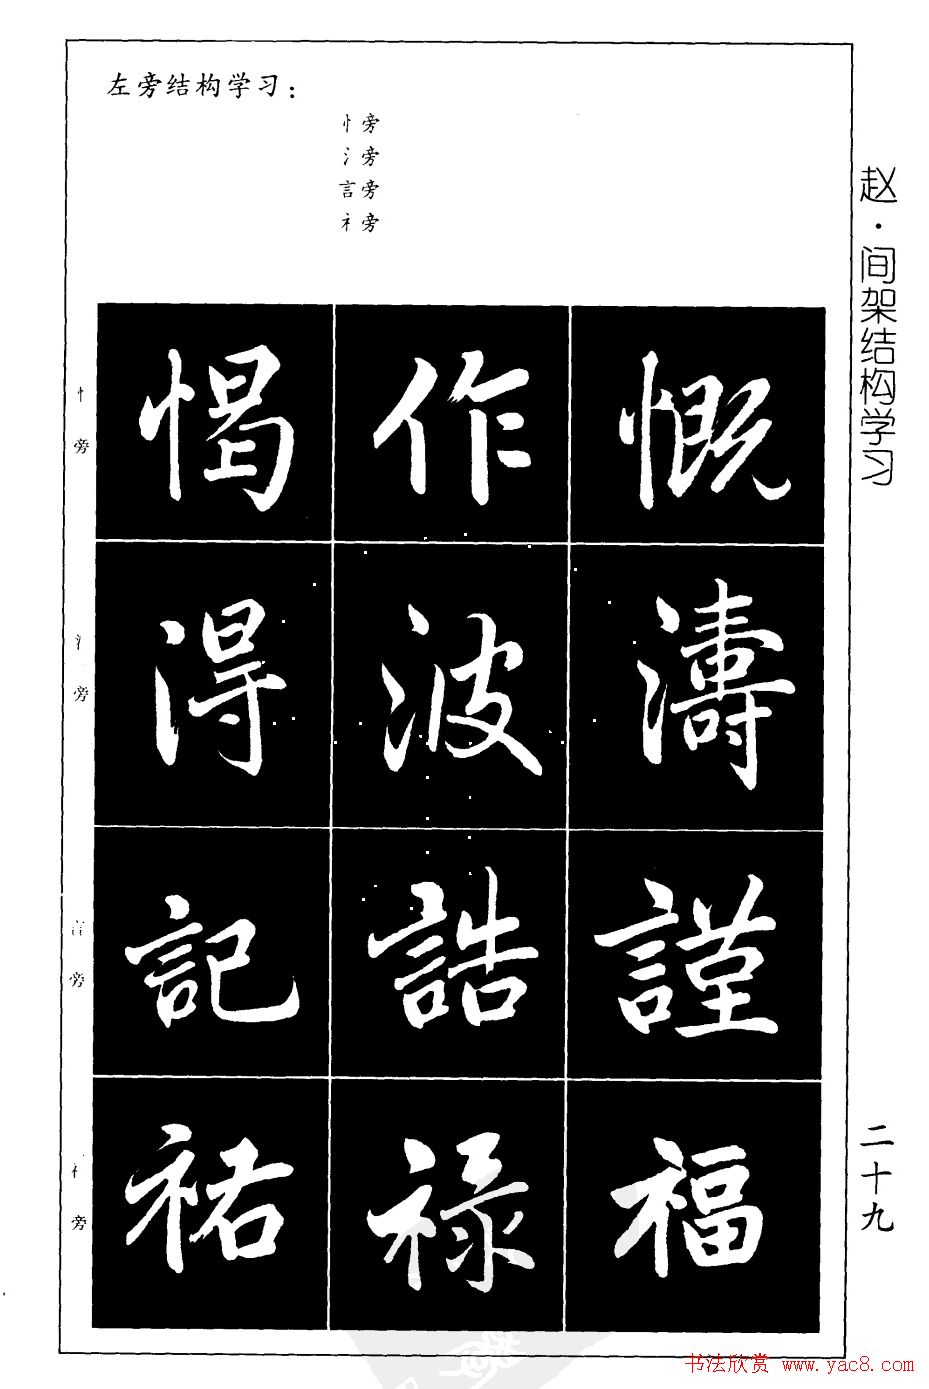 左旁结构学习：
忄旁
氵旁
言旁
礻旁
赵·间架结构学习
忄旁
愒 作 慨
氵旁
淂 波 濤
言旁
記 誥 謹
礻旁
禄 福
二十九
书法欣赏 www.yac8.com